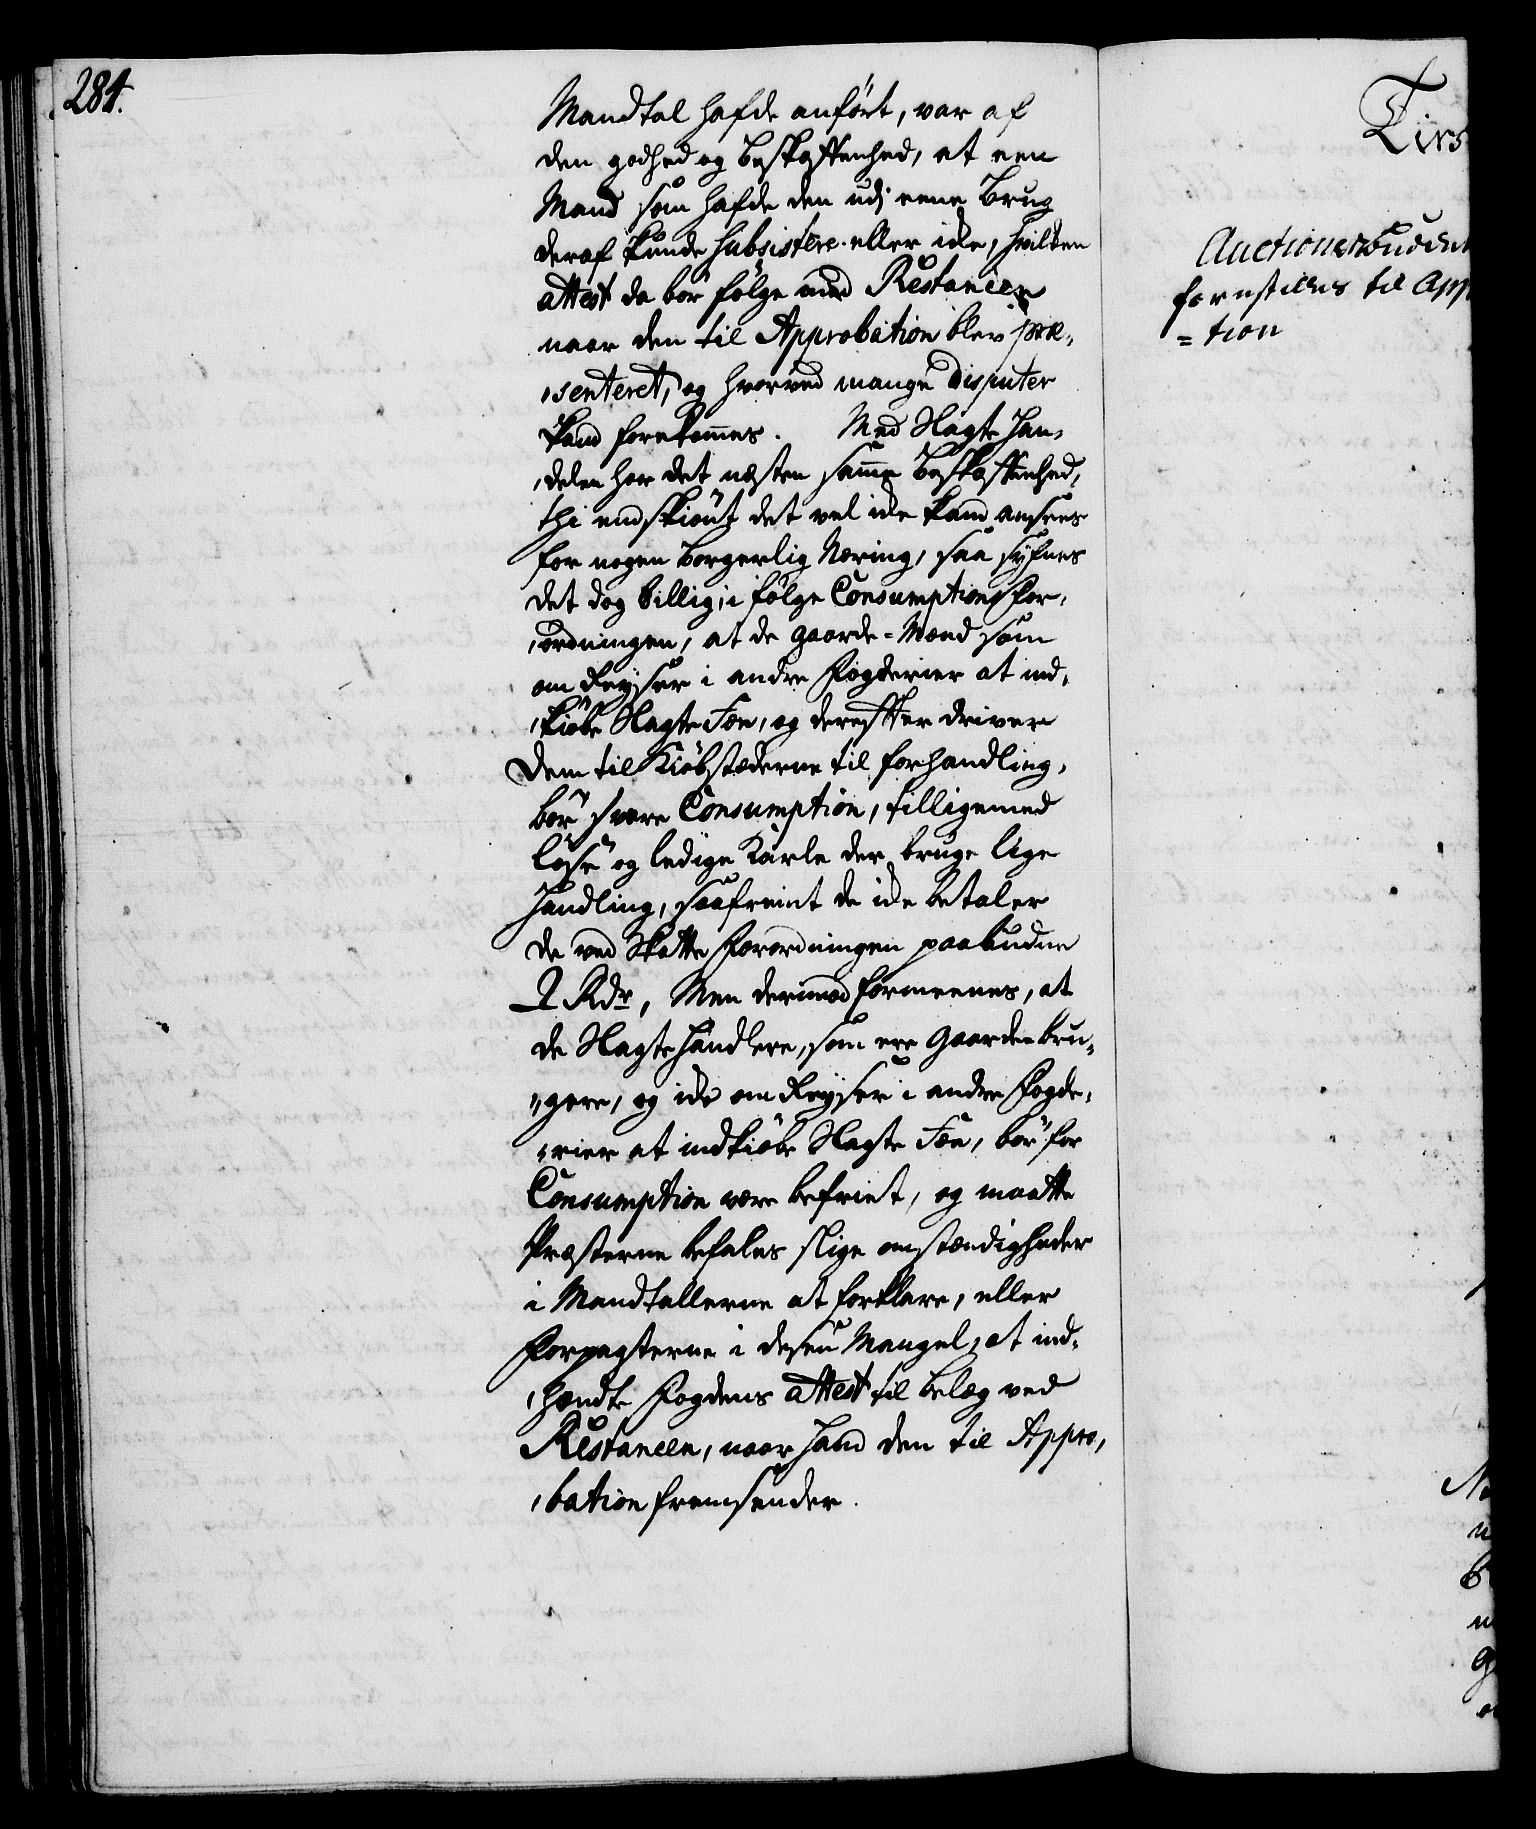 284.
Mandtal hafde anført, var af
den godhed og Beskaffenhed, at een
Mand som hafde den udj eene Brug
deraf kunde subsistere eller icke, hvilken
attest da bør følge med Restancen
naar den til Approbation blev præ-
-senteret, og hvorved mange Disputer
kand forekommes. Med Slagte Han-
-delen har det næsten samme Beskaffenhed,
thi endskiønt det vel icke kand ansees
for nogen Borgerlig Næring, saa syfnes
det dog billig, i følge Consumptions For-
-ordningen, at de Gaarde-Mænd som
om Reyser i andre Fogderier at ind-
-kiøbe Slagte Fæe, og derefter driver
dem til Kiøbstæderne til forhandling,
bør svare Consumption, tilligemed
løse og ledige Karle der bruge lige
Handling, saafremt de icke betaler
de ved Skatte Forordningen paabudne
2 Rdr, Men derimod formeenes, at
de Slagtehandlere, som ere Gaardebru-
-gere, og icke om Reyser i andre Fogde-
-rier at indkiøbe Slagte Fæe, bør for
Consumption være befriet, og maatte
Præsterne befales slige omstændigheder
i Mandtallerne at forklare, eller
Forpagterne i desen Mangel, at ind-
-hændte Fogdens attest til belæg ved
Restancen, naar Hand den til Appro-
-bation fremsender.
Tirs
Auctions
forestilles til App
= tion